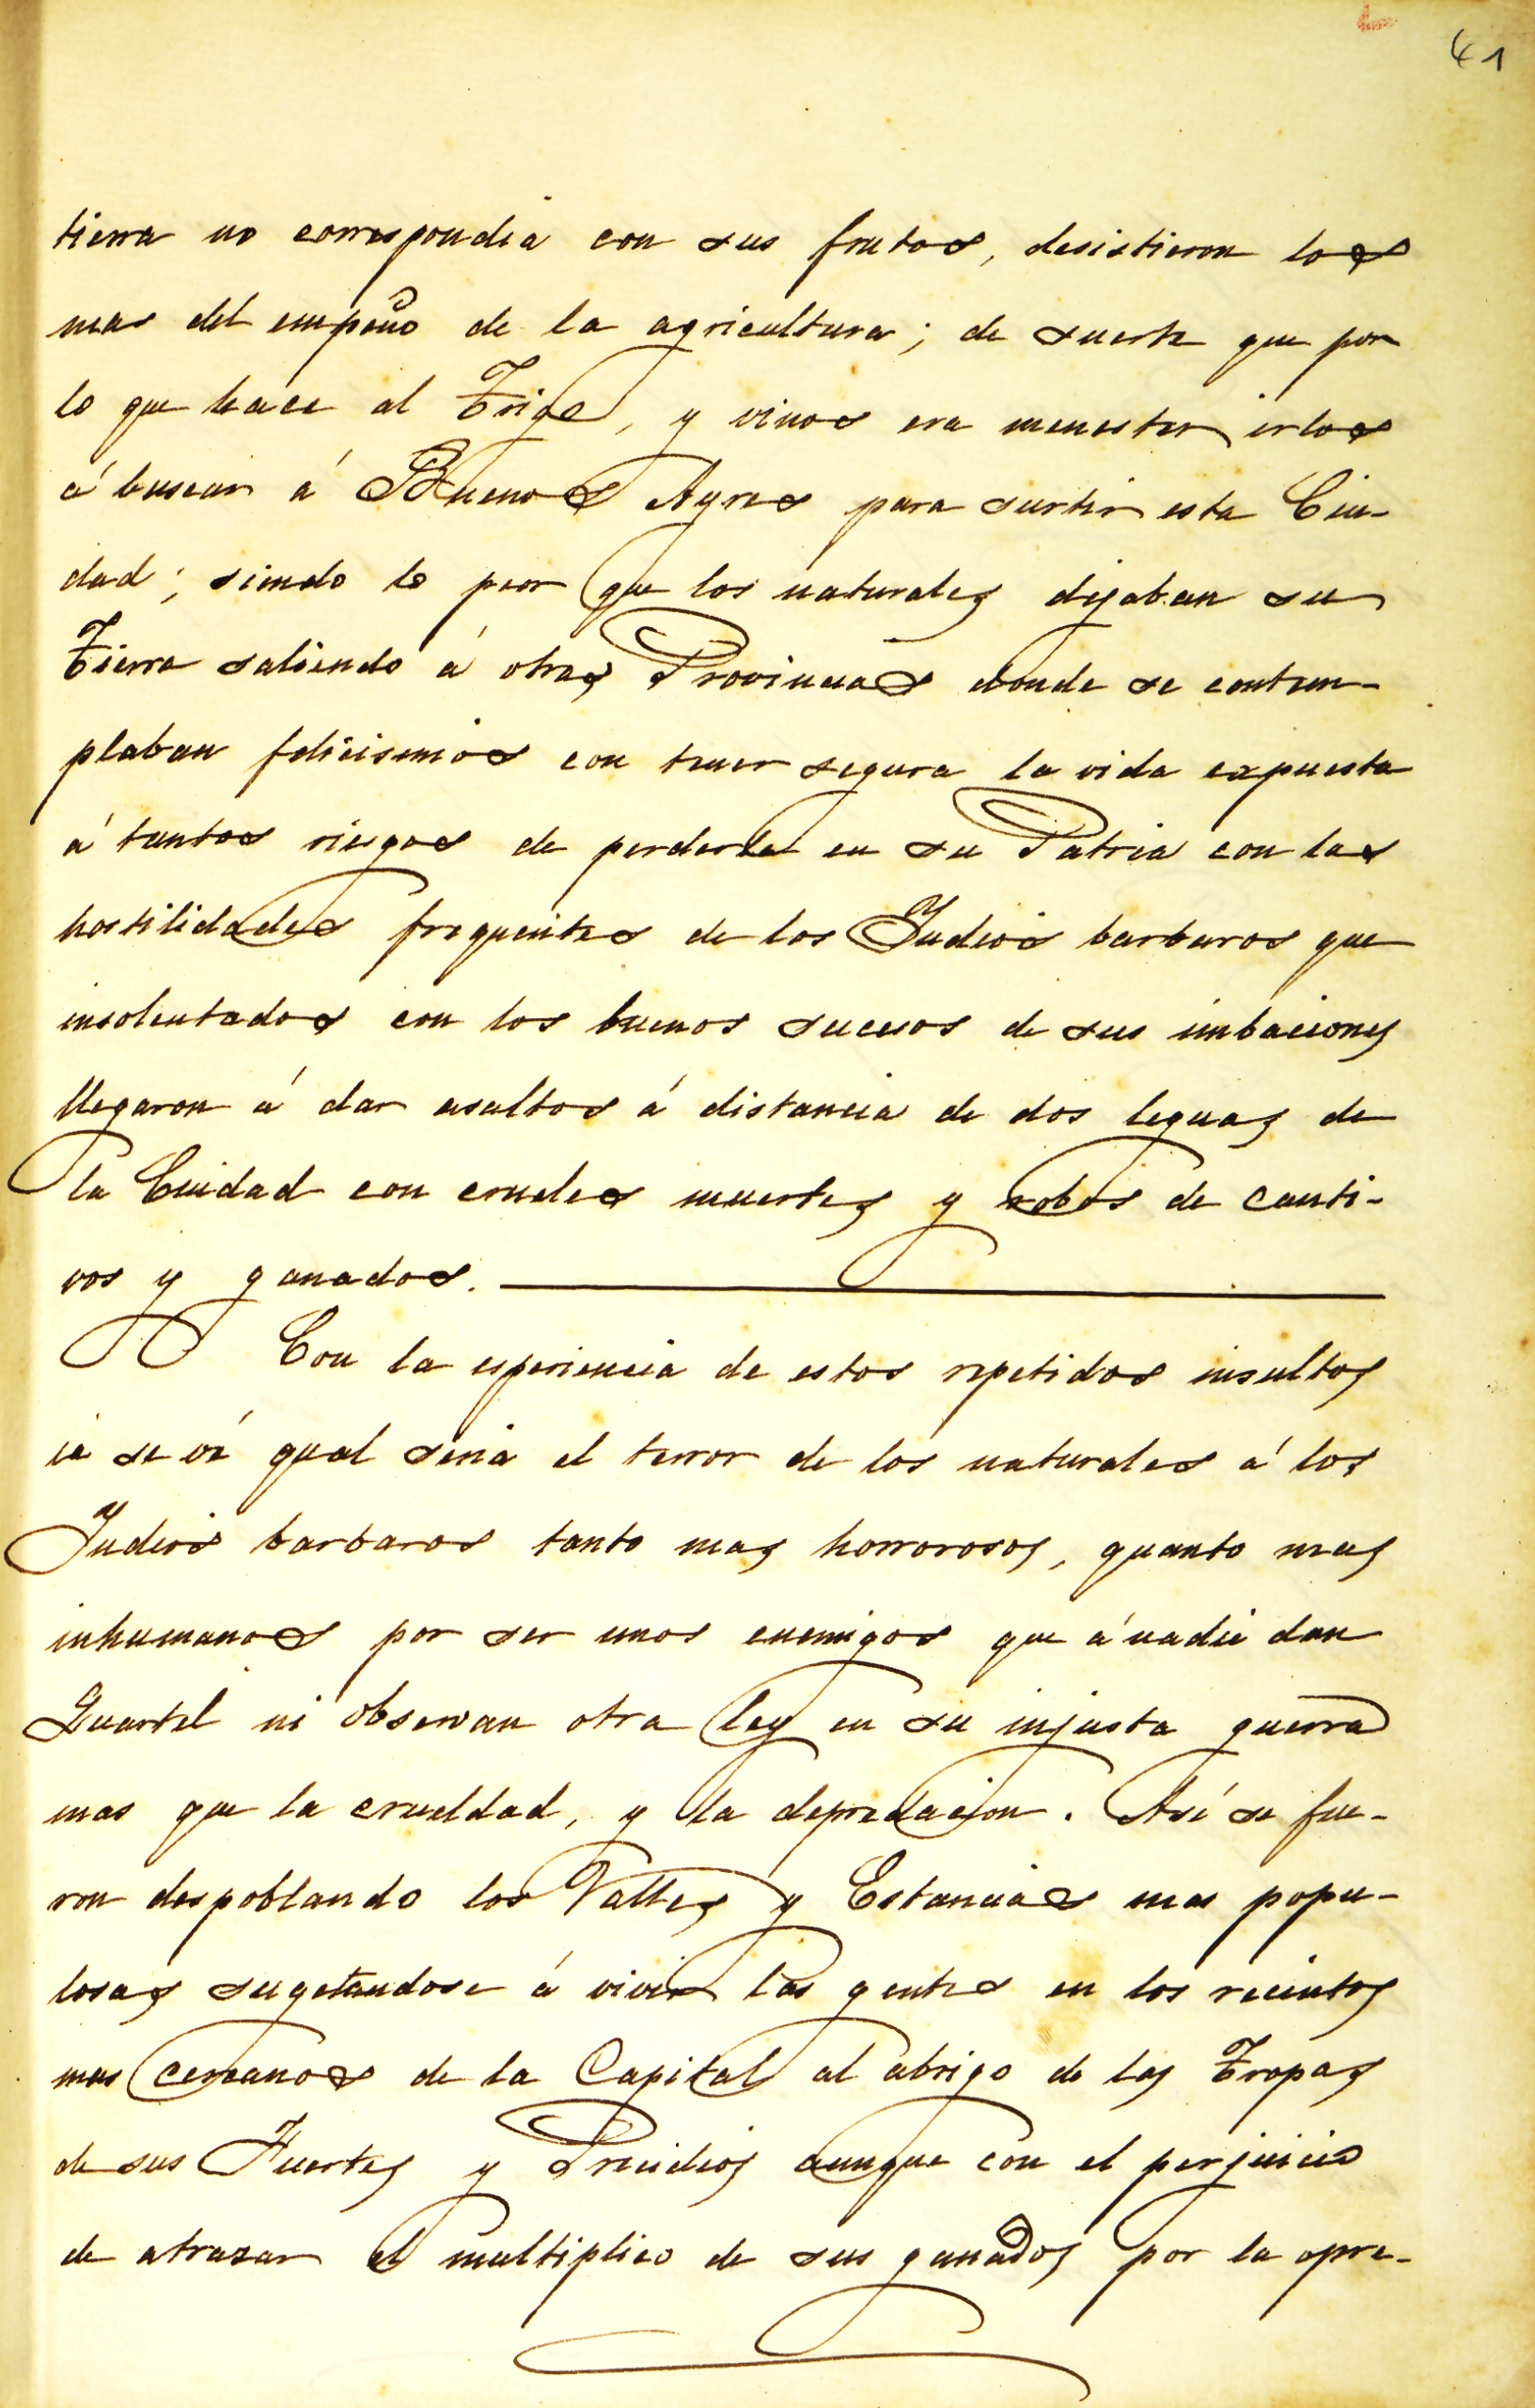 41
tierra no correspondia con sus frutos, desistieron los
mas del empeño de la agricultura; de suerte que por
lo que hace al Trigo, y vinos era menester irlos
á buscar á Buenos Ayres para surtir esta Ciu-
dad; siendo lo peor que los naturales dejaban su
Tierra saliendo á otras Provincias donde se contem-
plaban felicisimos con tener segura la vida expuesta
á tantos riesgos de perderla en su Patria con las
hostilidades frequentes de los Indios barbaros que
insolentados con los buenos sucesos de sus imbaciones
llegaron á dar asaltos á distancia de dos leguas de
la Ciudad con crueles muertes y robos de cauti-
vos y ganados.
Con la esperiencia de estos repetidos insultos
ia se vé qual seria el terror de los naturales á los
Indios barbaros tanto mas horrorosos, quanto mas
inhumanos por ser unos enemigos que á nadie dan
Quartel ni observan otra ley en su injusta guerra
mas que la crueldad, y la depredacion. Asi se fue-
ron despoblando los Valles y Estancias mas popu-
losas sugetandose á vivir las gentes en los recintos
mas cercanos de la Capital al abrigo de las Tropas
de sus Fuertes y Presidios aunque con el perjuicio
de atrasar el multiplico de sus ganados por la opre-